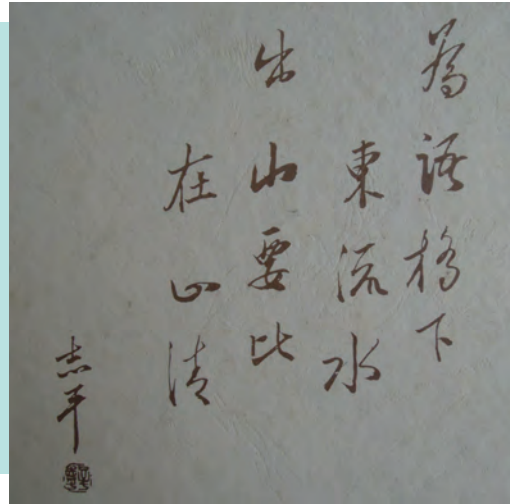 為語橋下
東流水
出山要比
在山清
志平